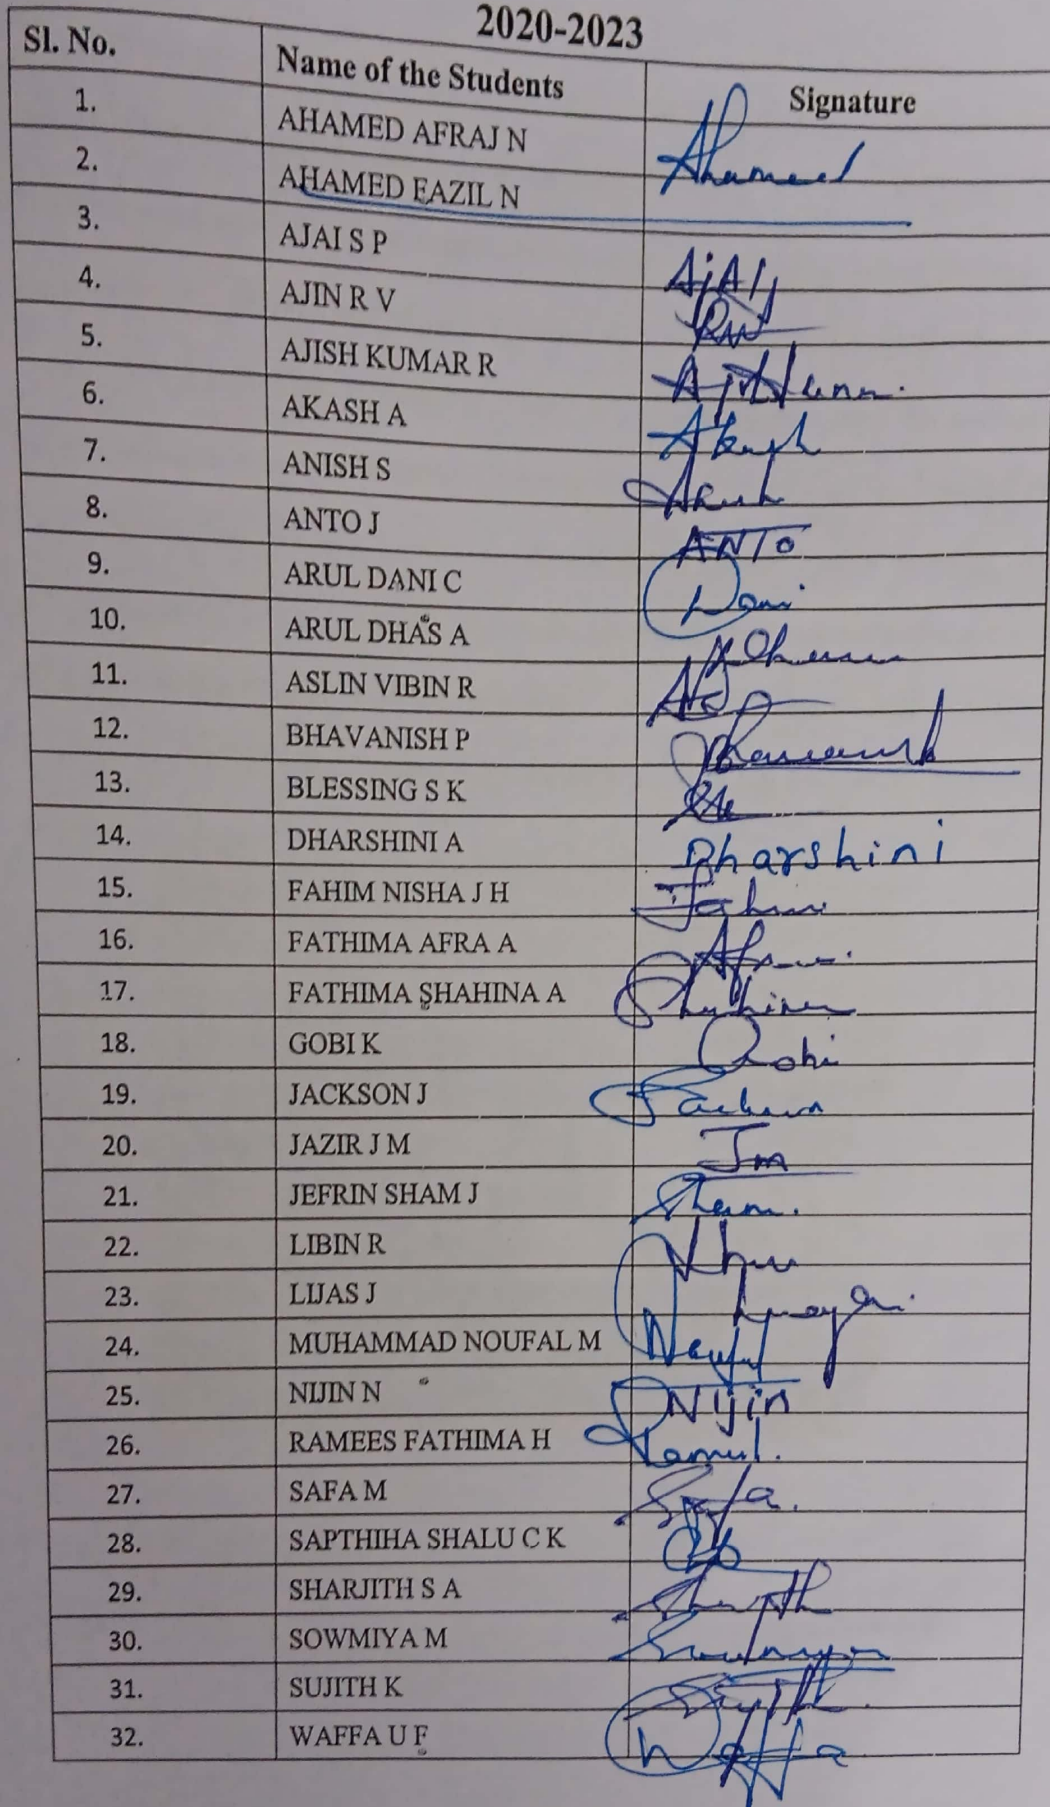 2020-2023
Sl. No. Name of the Students Signature
1. AHAMED AFRAJ N Ahamed
2. AHAMED FAZIL N
3. AJAI S P AjAi
4. AJIN R V
5. AJISH KUMAR R
6. AKASH A Akash
7. ANISH S
8. ANTO J ANTO
9. ARUL DANI C Dani
10. ARUL DHAS A
11. ASLIN VIBIN R
12. BHAVANISH P
13. BLESSING S K
14. DHARSHINI A Dharshini
15. FAHIM NISHA J H
16. FATHIMA AFRA A
17. FATHIMA SHAHINA A Shahina
18. GOBI K Gobi
19. JACKSON J
20. JAZIR J M Jm
21. JEFRIN SHAM J Sham.
22. LIBIN R
23. LIJAS J
24. MUHAMMAD NOUFAL M
25. NIJIN N Nijin
26. RAMEES FATHIMA H
27. SAFA M Safa.
28. SAPTHIHA SHALU C K
29. SHARJITH S A
30. SOWMIYA M
31. SUJITH K Sujith.
32. WAFFA U F Waffa